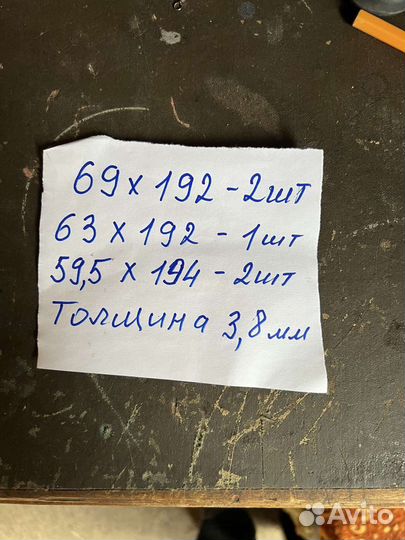 69 x 192 - 2шт
63 x 192 - 1шт
59,5 x 194 - 2шт
Толщина 3,8мм
Avito